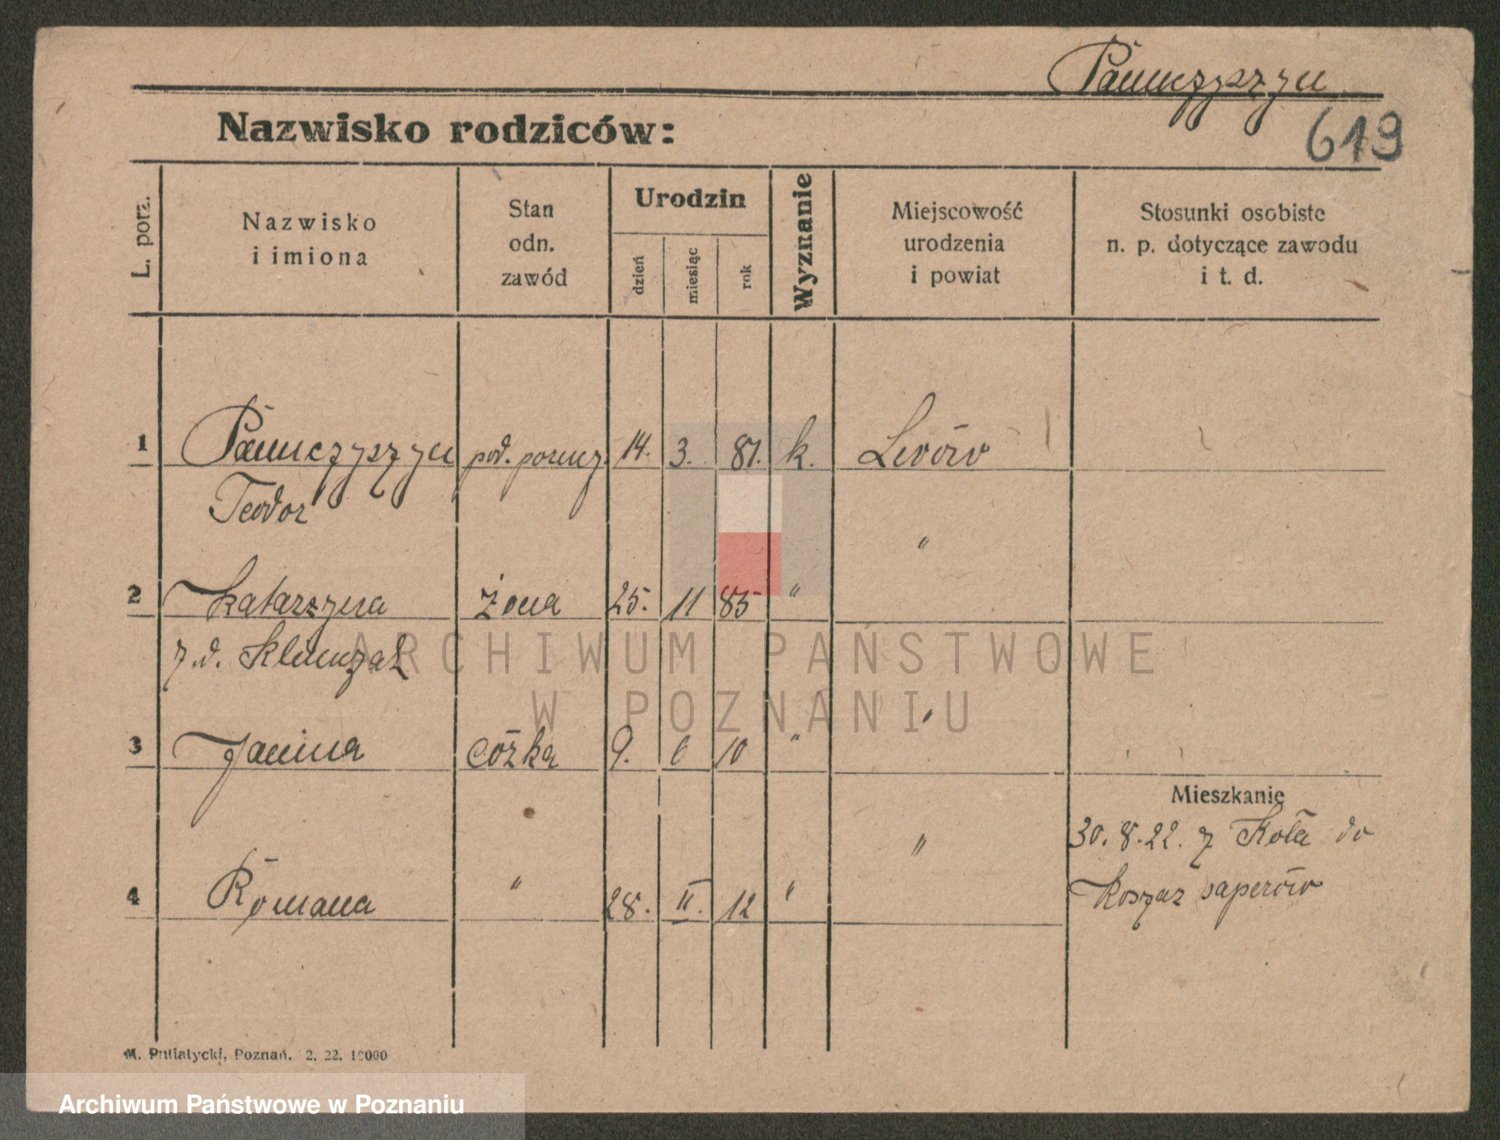 Pańczyszyn
619
Nazwisko rodziców:
L. porz.
Nazwisko
i imiona
Stan
odn.
zawód
Urodzin
dzień
miesiąc
rok
Wyznanie
Miejscowość
urodzenia
i powiat
Stosunki osobiste
n. p. dotyczące zawodu
i t. d.
1 Pańczyszyn pod. porucz. 14. 3. 81. k. Lwów
Teodor
2 Katarzyna żona 25. 11 85 " "
z. d.
3 Janina córka 9. 6 10 " "
Mieszkanie
30. 8. 22. z Koła do
Koszar saperów
4 Romana " 28. II. 12 " "
M. Putiatycki, Poznań. 2. 22. 10000
ARCHIWUM PAŃSTWOWE
W POZNANIU
Archiwum Państwowe w Poznaniu